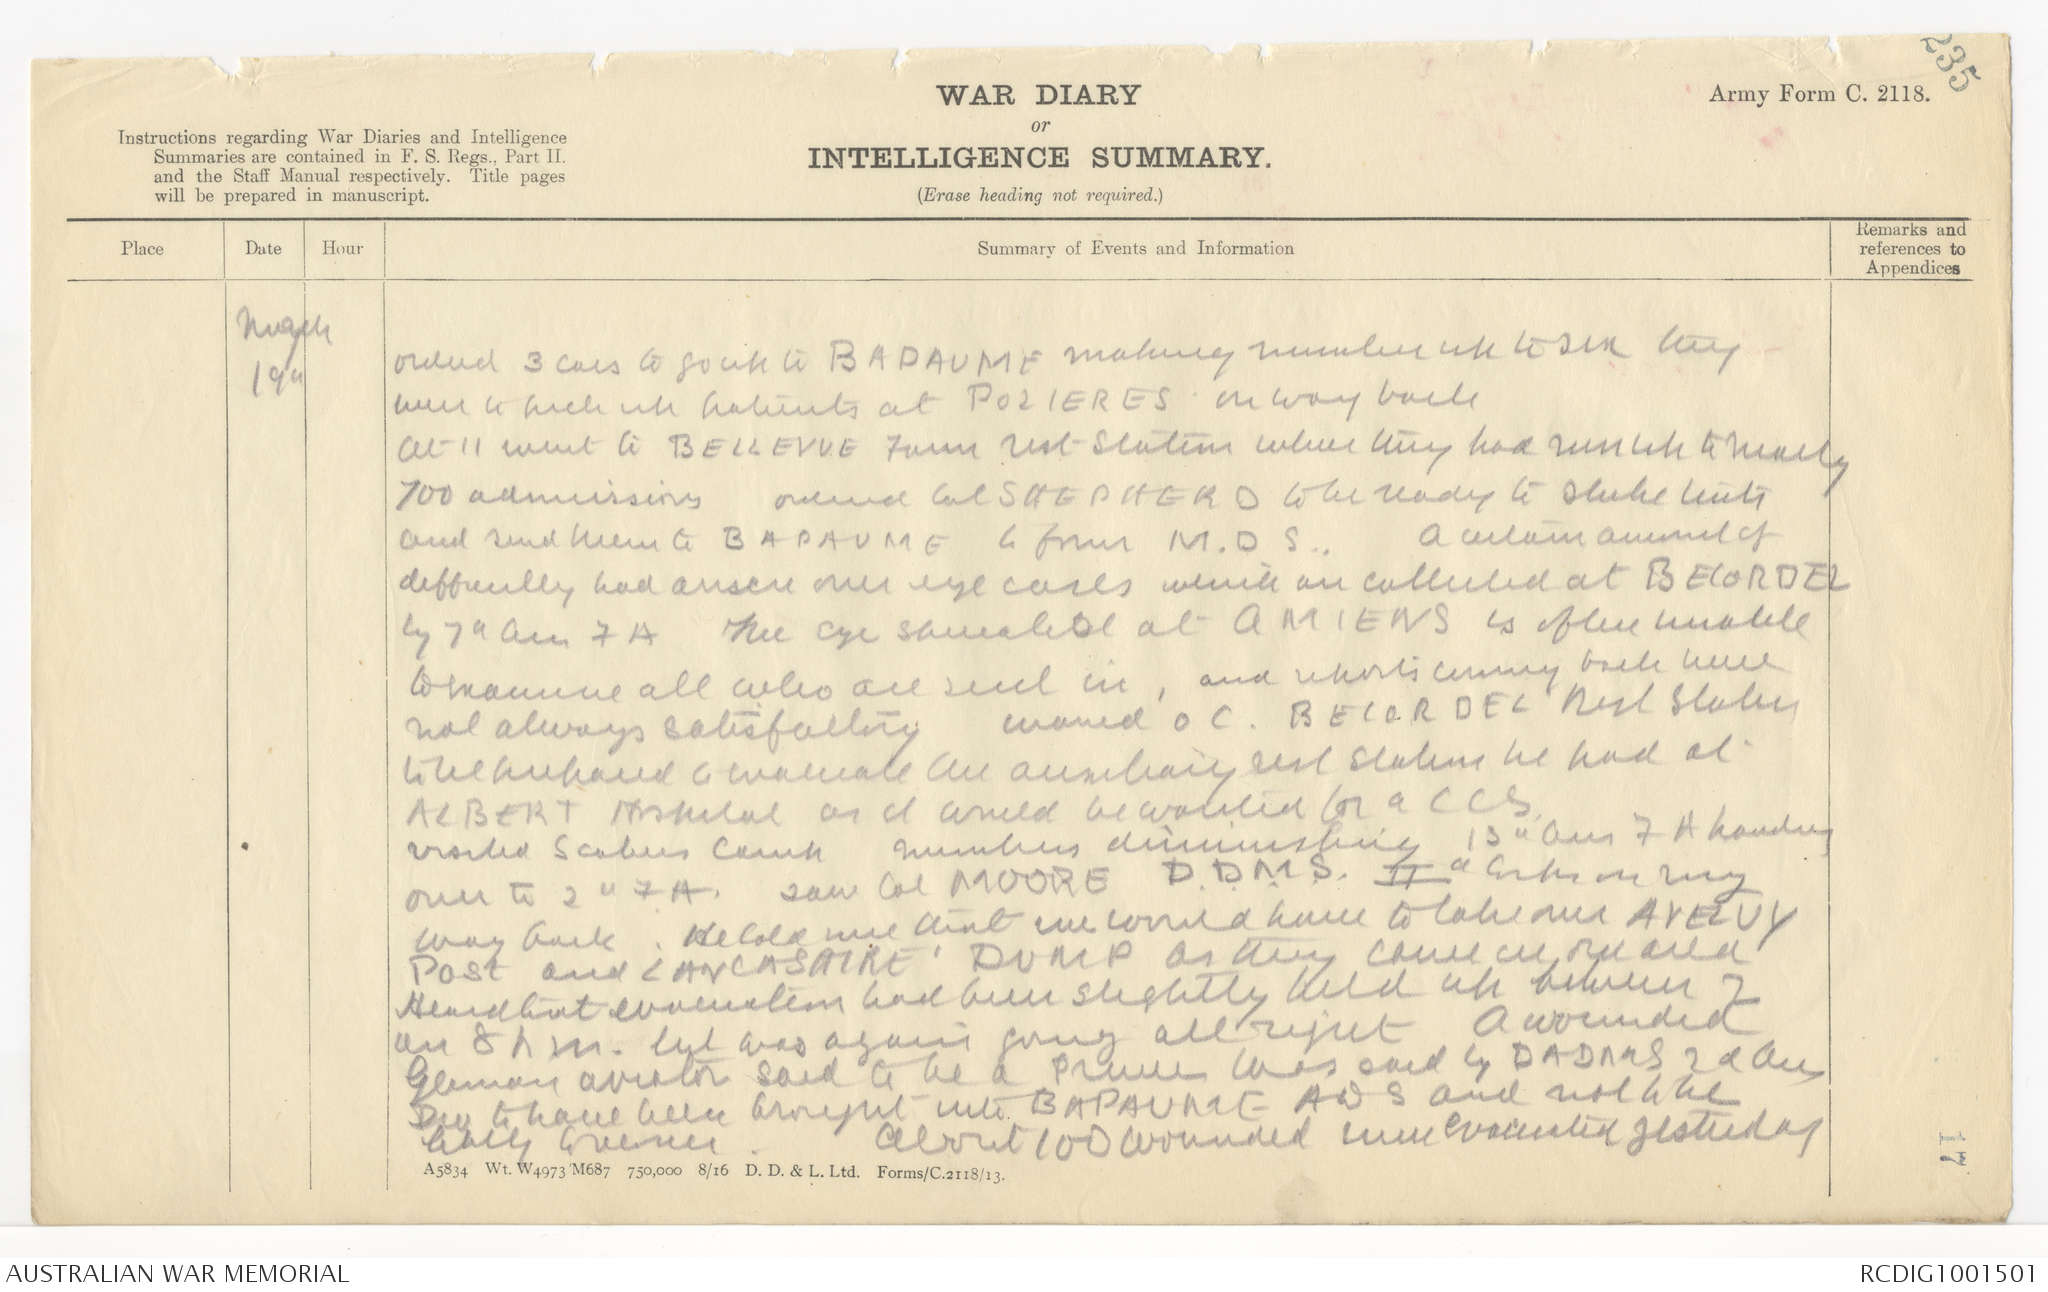 235
WAR DIARY
or
INTELLIGENCE SUMMARY.
(Erase heading not required.)
Army Form C. 2118.
Instructions regarding War Diaries and Intelligence
Summaries are contained in F. S. Regs., Part II.
and the Staff Manual respectively. Title pages
will be prepared in manuscript.
Place
Date
Hour
Summary of Events and Information
Remarks and
references to
Appendices
March
19th
ordered 3 cars to go up to BAPAUME making number up to six they
were to pick up patients at POZIERES on way back
At 11 went to BELLEVUE Farm rest station where they had run up to nearly
700 admissions ordered Col SHEPHERD to be ready to strike tents
and send them to BAPAUME to form M.D.S.. A certain amount of
difficulty had arisen over eye cases which are collected at BECORDEL
by 7th Aus F A The eye specialist at AMIENS is often unable
to examine all who are sent in, and reports coming back were
not always satisfactory warned O C. BECORDEL Rest Station
to be prepared to evacuate the auxiliary rest station he had at
ALBERT Hospital as it would be wanted for a CCS.
visited Scabies Camp numbers diminishing 15th Aus F A handing
over to 2nd F A. saw Col MOORE D.D.M.S. IInd Corps on my
way back. He told me that we would have to take over AVELUY
Post and LANCASHIRE DUMP as they came in our area
Heard that evacuation had been slightly held up between 7
and 8 A.m. but was again going all right A wounded
German aviator said to be a Prince was said by DADMS 2d Aus
Div to have been brought into BAPAUME ADS and not to be
badly wounded About 100 wounded were evacuated yesterday
A5834 Wt. W4973/M687 750,000 8/16 D. D. & L. Ltd. Forms/C.2118/13.
17
AUSTRALIAN WAR MEMORIAL
RCDIG1001501